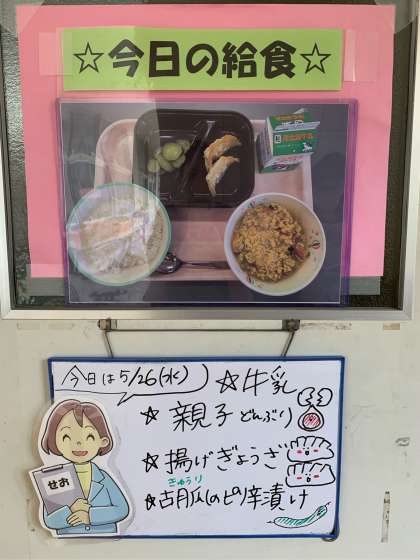 ☆今日の給食☆
今日は5/26(水)
☆牛乳
☆親子どんぶり
☆揚げぎょうざ
きゅうり
☆胡瓜のピリ辛漬け
せお